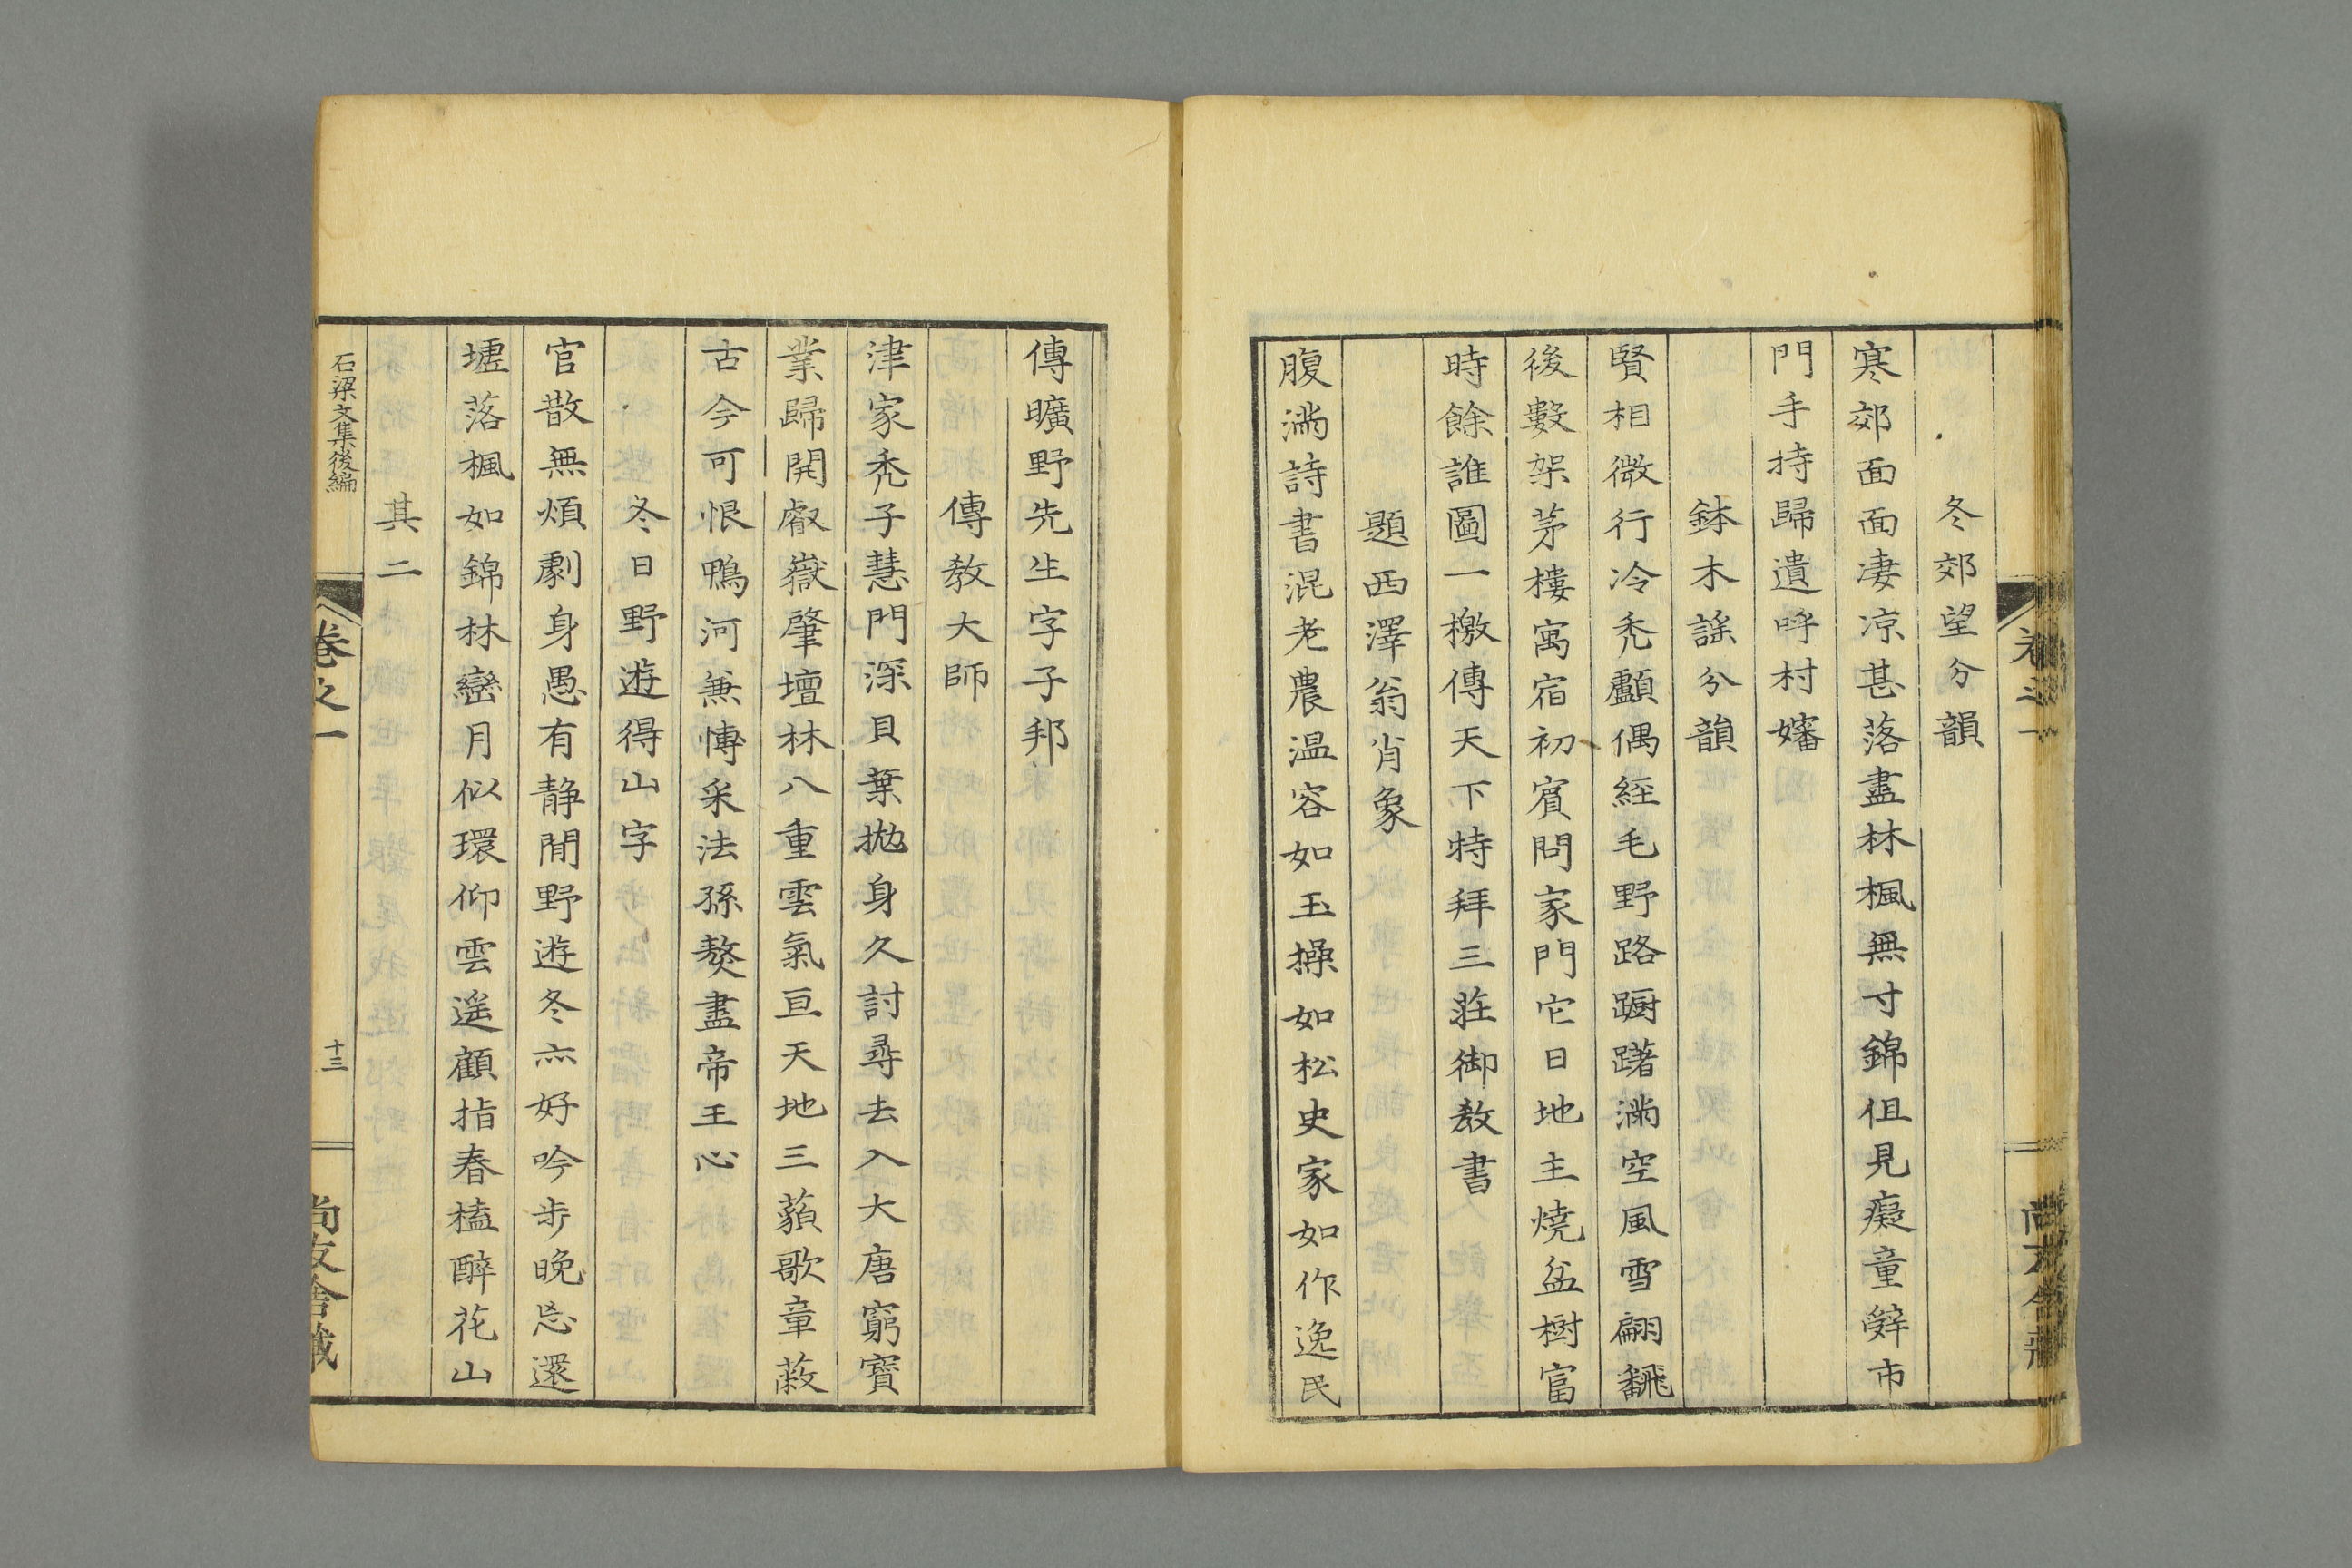 冬郊望分韻
寒郊面面凄凉甚落盡林楓無寸錦但見癡童辤市
門手持歸遺呼村嬸
鉢木謡分韻
賢相微行冷禿顱偶経毛野路蹰躇満空風雪翩飜
後數架茅樓寓宿初賓問家門它日地主燒盆樹富
時餘誰圖一檄傳天下特拜三荘御教書
題西澤翁肖象
腹満詩書混老農温容如玉操如松史家如作逸民
傳曠野先生字子邦
傳教大師
津家禿子慧門深貝葉拋身久討尋去入大唐窮寳
業歸開叡嶽肇壇林八重雲氣亘天地三藐歌章蔽
古今可恨鴨河兼慱采法孫嫯盡帝王心
冬日野遊得山字
官散無煩劇身愚有静閒野遊冬亦好吟步晚忘還
壚落楓如錦林巒月似環仰雲遥顧指春榼醉花山
其二
石梁文集後編
卷之一
十三
尚友舎蔵